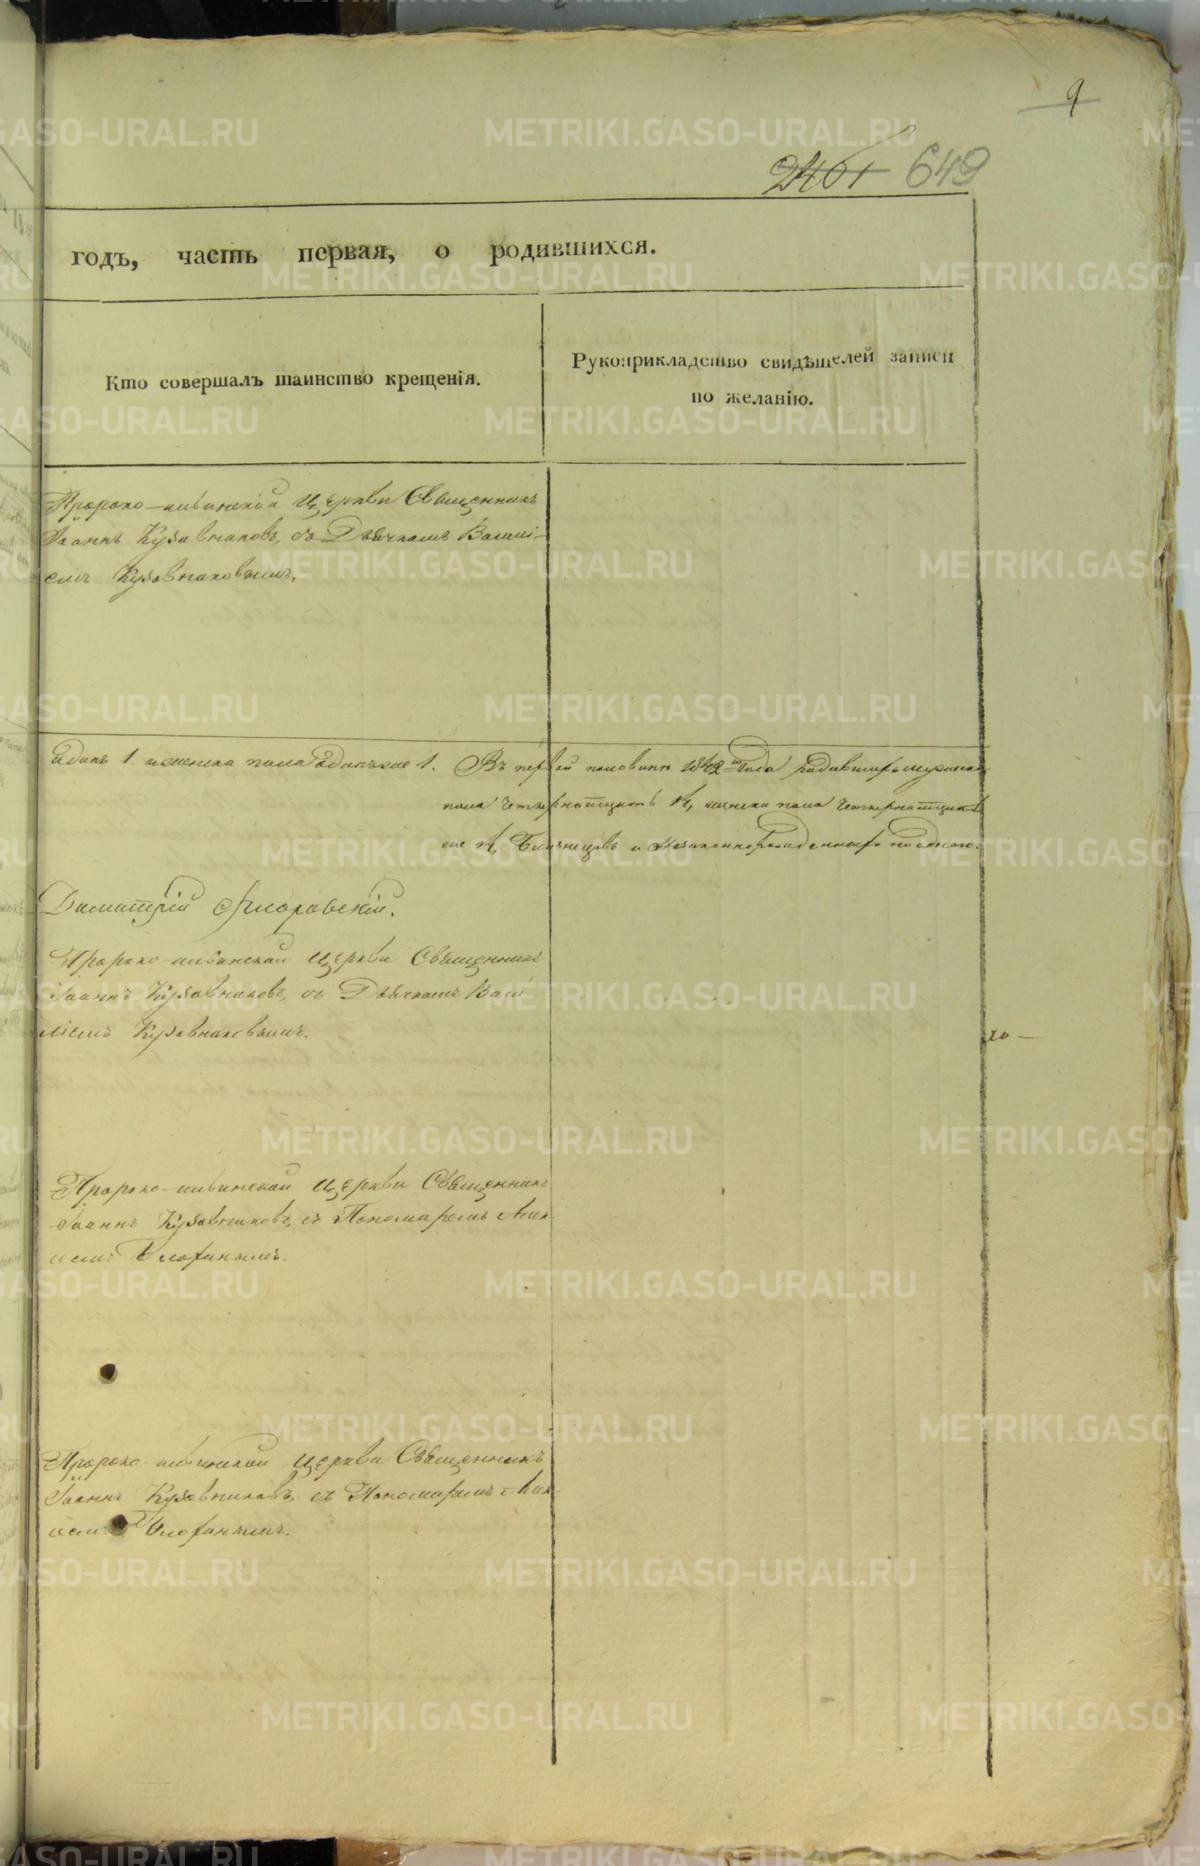 9
2401 649
годъ, часть первая, о родившихся.
Кто совершалъ таинство крещенія.
Рукоприкладство свидѣтелей записи
по желанію.
Пророко-ильинской Церкви Священникъ
Іоаннъ Кузовниковъ, съ Дьячкомъ Василі-
емъ Кузовниковымъ.
Единъ 1. женска пола Единъ 1. Въ первой половинѣ 1842 года родившихся мужеска
пола женска пола
Близнецовъ и незаконнорожденныхъ не было.
Димитрій Флоровскій.
Пророко-ильинской Церкви Священникъ
Іоаннъ Кузовниковъ, съ Дьячкомъ Васи
ліемъ Кузовниковымъ.
Пророко-ильинской Церкви Священникъ
Іоаннъ Кузовниковъ, съ Пономаремъ
Пророко-ильинской Церкви Священникъ
Іоаннъ Кузовниковъ, съ Пономаремъ
METRIKI.GASO-URAL.RU